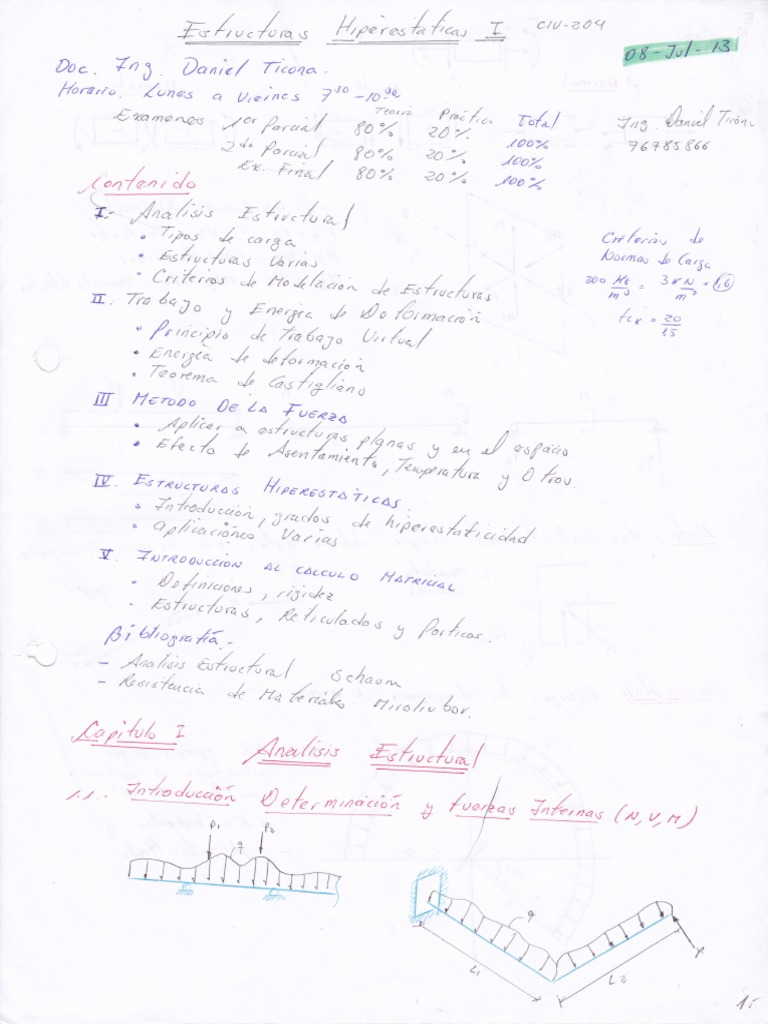 Estructuras Hiperestaticas I CIU-204
08-Jul-13
Doc. Ing. Daniel Ticona.
Horario. Lunes a Vieines 7³⁰-10⁰⁰
Teoria Práctica Total
Examenes 1er Parcial 80% 20% 100%
2do Parcial 80% 20% 100%
Ex. Final 80% 20% 100%
Ing. Daniel Ticona
76785866
Contenido
I. Analisis Estructural
• Tipos de carga
• Estructuras Varias
• Criterios de Modelación de Estructuras
Criterios de
Normas de Carga
300 Kg/m³ = 3 KN/m³ × 1,6
fck = 20/15
II. Trabajo y Energia de Deformación
• Principio de Trabajo Virtual
• Energía de deformación
• Teorema de Castigliano
III METODO DE LA FUERZA
• Aplicar a estructuras planas y en el espacio
• Efecto de Asentamiento, Temperatura y Otros.
IV. ESTRUCTURAS HIPERESTÁTICAS
• Introducción, grados de hiperestaticidad
• Aplicaciónes Varias
V. INTRODUCCION AL CALCULO MATRICIAL
• Definiciones, rigidez
• Estructuras, Reticulados y Porticos.
Bibliografía.
- Analisis Estructural Schaum
- Resistencia de Materiales Miroliubov.
Capitulo I Analisis Estructural
1.1.- Introducción Determinación y fuerzas Internas (N,V,M)
P1 P2
q
q
L1 L2
1.-